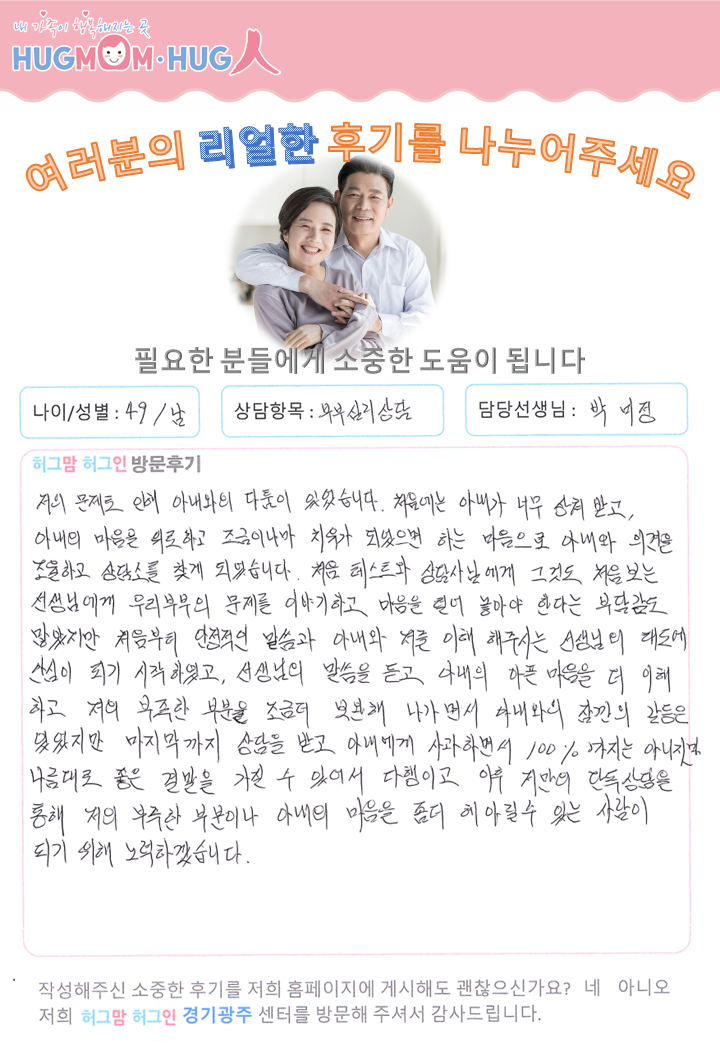 내 가족이 행복해지는 곳
HUGMOM·HUG人
여러분의 리얼한 후기를 나누어주세요
필요한 분들에게 소중한 도움이 됩니다
나이/성별 : 49 / 남
상담항목 : 부부심리상담
담당선생님 : 박 미정
허그맘 허그인 방문후기
저의 문제로 인해 아내와의 다툼이 있었습니다. 처음에는 아내가 너무 상처 받고,
아내의 마음을 위로하고 조금이나마 치유가 되었으면 하는 마음으로 아내와 의견을
조율하고 상담소를 찾게 되었습니다. 처음 테스트와 상담사님에게 그것도 처음 보는
선생님에게 우리부부의 문제를 이야기하고 마음을 열어 놓아야 한다는 부담감도
많았지만 처음부터 안정적인 말씀과 아내와 저를 이해 해주시는 선생님의 태도에
안심이 되기 시작하였고, 선생님의 말씀을 듣고 아내의 아픈 마음을 더 이해
하고 저의 부족한 부분을 조금더 보완해 나가면서 아내와의 잠깐의 갈등은
있었지만 마지막까지 상담을 받고 아내에게 사과하면서 100% 까지는 아니지만
나름대로 좋은 결말을 가질 수 있어서 다행이고 이후 저만의 단독상담을
통해 저의 부족한 부분이나 아내의 마음을 좀더 헤아릴수 있는 사람이
되기 위해 노력하겠습니다.
작성해주신 소중한 후기를 저희 홈페이지에 게시해도 괜찮으신가요? 네 아니오
저희 허그맘 허그인 경기광주 센터를 방문해 주셔서 감사드립니다.